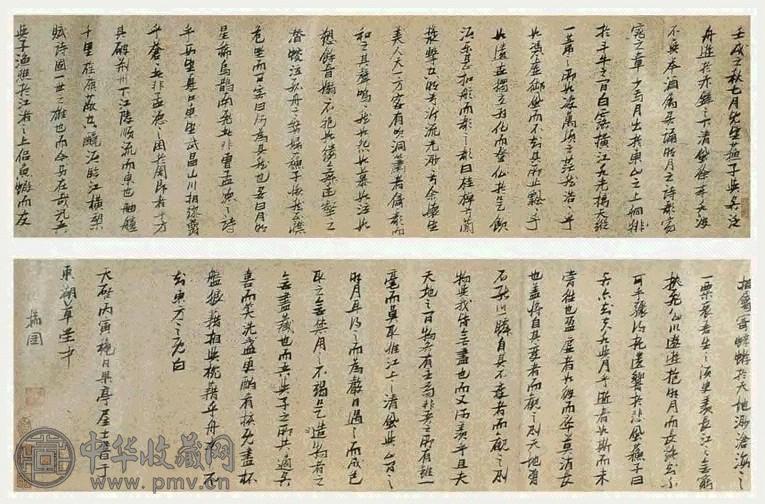 壬戌之秋七月既望蘇子與客泛
舟遊於赤壁之下清風徐來水波
不興舉酒屬客誦明月之詩歌窈
窕之章少焉月出於東山之上徘徊
於斗牛之間白露橫江水光接天縱
一葦之所如凌萬頃之茫然浩浩乎
如馮虛御風而不知其所止飄飄乎
如遺世獨立羽化而登仙於是飲
酒樂甚扣舷而歌之歌曰桂棹兮蘭
槳擊空明兮泝流光渺渺兮余懷望
美人天一方客有吹洞簫者倚歌而
和之其聲嗚嗚然如怨如慕如泣如
訴餘音嫋嫋不絕如縷舞幽壑之
潛蛟泣孤舟之嫠婦蘇子愀然正襟
危坐而問客曰何為其然也客曰月明
星稀烏鵲南飛此非曹孟德之詩
乎西望夏口東望武昌山川相繆鬱
乎蒼蒼此非孟德之困於周郎者乎方
其破荊州下江陵順流而東也舳艫
千里旌旗蔽空釃酒臨江橫槊
賦詩固一世之雄也而今安在哉況吾
與子漁樵於江渚之上侶魚蝦而友
相屬寄蜉蝣於天地渺滄海之
一粟哀吾生之須臾羨長江之無窮
挾飛仙以遨遊抱明月而長終知不
可乎驟得託遺響於悲風蘇子曰
客亦知夫水與月乎逝者如斯而未
嘗往也盈虛者如彼而卒莫消長
也蓋將自其變者而觀之則天地曾
不能以一瞬自其不變者而觀之則
物與我皆無盡也而又何羨乎且夫
天地之間物各有主苟非吾之所有雖一
毫而莫取惟江上之清風與山間之
明月耳得之而為聲目遇之而成色
取之無禁用之不竭是造物者之
無盡藏也而吾與子之所共適客
喜而笑洗盞更酌肴核既盡杯
盤狼藉相與枕藉乎舟中不
知東方之既白
丙寅穐日亭居士書于
東湖草堂中
中华收藏网
www.pmv.cn